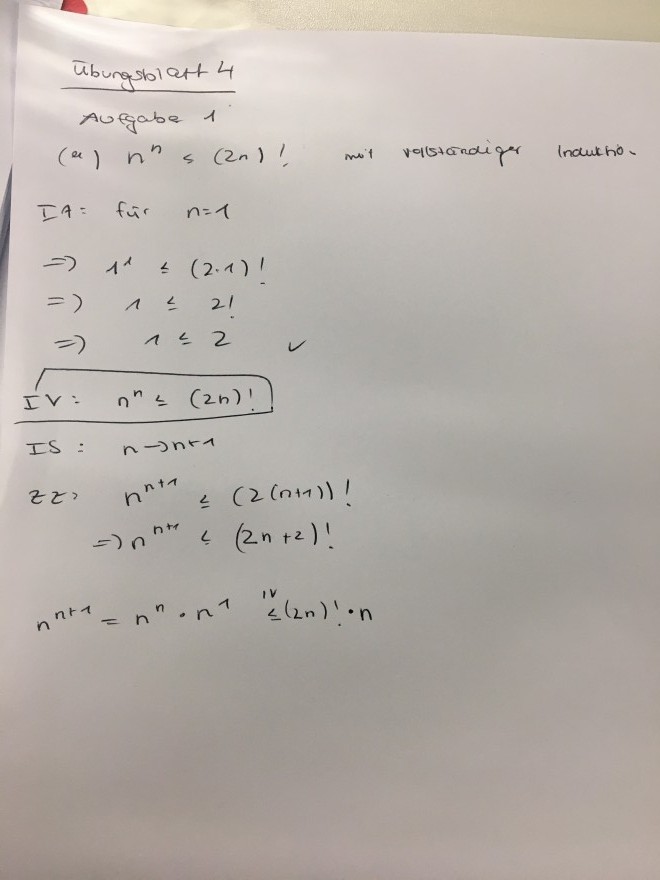 Übungsblatt 4
Aufgabe 1
(a) nⁿ ≤ (2n)! mit vollständiger Induktio.
IA: für n=1
=> 1¹ ≤ (2·1)!
=> 1 ≤ 2!
=> 1 ≤ 2 ✓
IV: nⁿ ≤ (2n)!
IS: n→n+1
ZZ: nⁿ⁺¹ ≤ (2(n+1))!
=> nⁿ⁺¹ ≤ (2n+2)!
nⁿ⁺¹ = nⁿ · n¹ ≤ᴵⱽ (2n)! · n